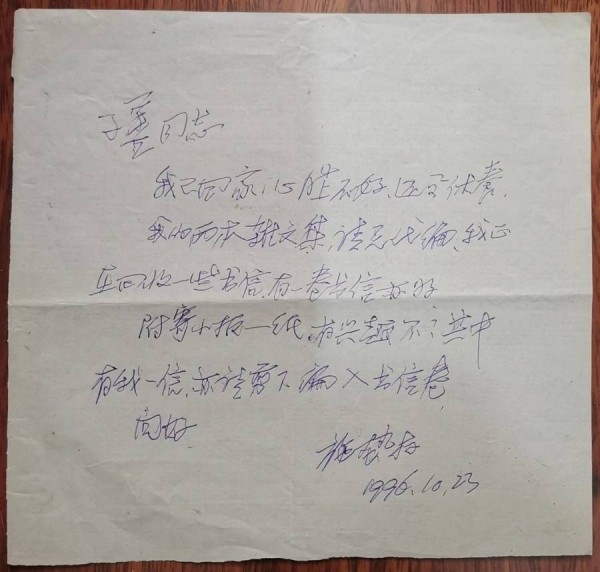 子善同志
我已回家,心脏不好,还需休养,
我的两本杂文集,请兄代编,我正
在回收一些书信,有一卷书信亦好
附寄小报一纸,有兴趣不?其中
有我一信,亦请剪下编入书信卷,
问好
施蛰存
1996.10.23